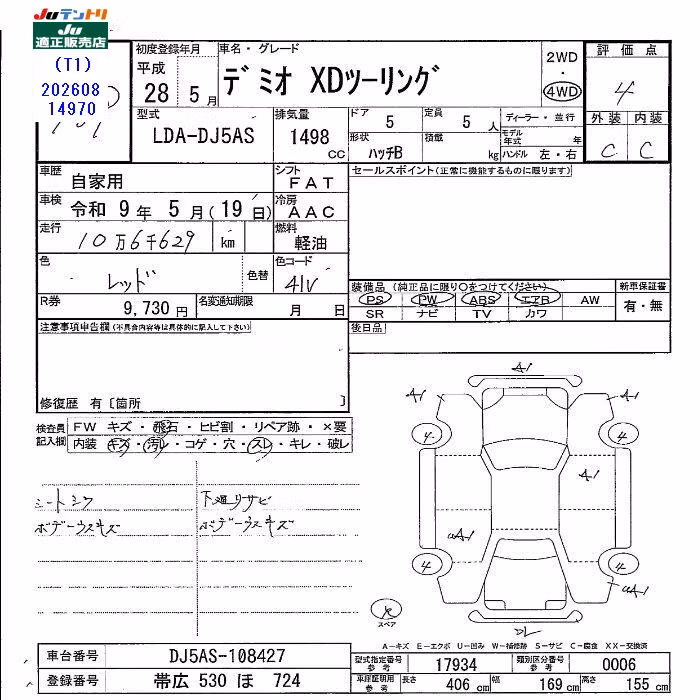 Juテントリ
Ju
適正販売店
(T1)
202608
14970
初度登録年月
平成
28 5月
車名・グレード
デミオ XDツーリング
2WD
・
4WD
評価点
4
外装 内装
C C
型式
LDA-DJ5AS
排気量
1498
CC
ドア
5
定員
5人
形状
ハッチB
積載
kg
ディーラー・並行
モデル年式 年
ハンドル 左・右
車歴
自家用
シフト
FAT
車検
令和 9年 5月(19日)
冷房
AAC
走行
10万6千629 km
燃料
軽油
色
レッド
色替
色コード
41V
R券
9,730円
名変通知期限
月 日
セールスポイント(正常に機能するものに限ります)
装備品 (純正品に限り○をつけてください)
PS PW ABS エアB AW
SR ナビ TV カワ
新車保証書
有・無
後日品
注意事項申告欄(不具合内容等は具体的に記入して下さい)
修復歴 有〔箇所 〕
検査員記入欄
FW キズ・飛石・ヒビ割・リペア跡・×要
内装 キズ・汚れ・コゲ・穴・スレ・キレ・破レ
シートシワ
ボデーウスキズ
下廻りサビ
ボデーウスキズ
A1
A1
A1
4
4
A1
uA1
4
4
uA1
スペア
A-キズ E-エクボ U-凹み W-補修跡 S-サビ C-腐食 XX-交換済
車台番号
DJ5AS-108427
登録番号
帯広 530 ほ 724
型式指定番号
参考
17934
類別区分番号
参考
0006
車検証明用
参考
長さ
406 cm
幅
169 cm
高さ
155 cm